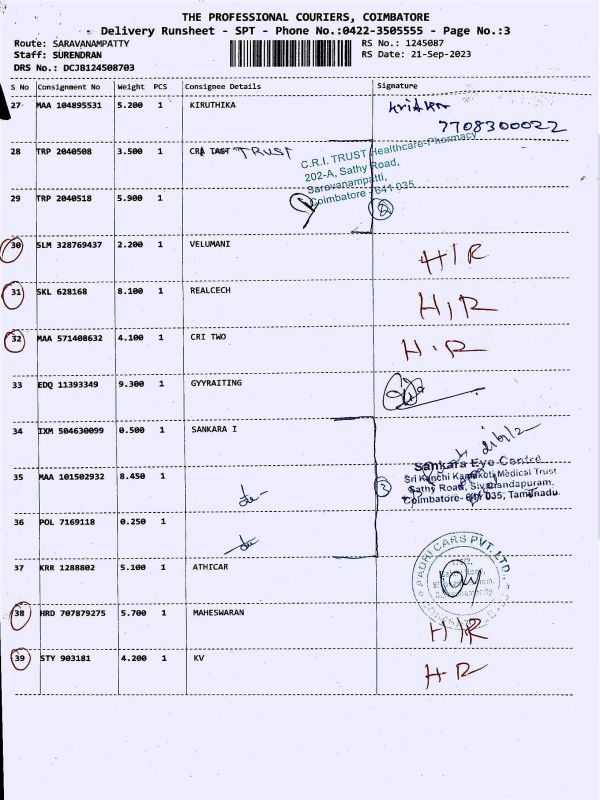 THE PROFESSIONAL COURIERS, COIMBATORE
Delivery Runsheet - SPT - Phone No.:0422-3505555 - Page No.:3
Route: SARAVANAMPATTY
RS No.: 1245087
Staff: SURENDRAN
RS Date: 21-Sep-2023
DRS No.: DCJB124508703
S No Consignment No Weight PCS Consignee Details Signature
27 MAA 104895531 5.200 1 KIRUTHIKA
7708300022
28 TRP 2040508 3.500 1 CRI TRUST
C.R.I. TRUST Healthcare-Pharmacy
202-A, Sathy Road,
Saravanampatti,
Coimbatore - 641 035
29 TRP 2040518 5.900 1
2
30 SLM 328769437 2.200 1 VELUMANI H/R
31 SKL 628168 8.100 1 REALCECH H/R
32 MAA 571408632 4.100 1 CRI TWO H.R
33 EDQ 11393349 9.300 1 GYYRAITING
34 IXM 504630099 0.500 1 SANKARA I
Sankara Eye Centre
Sri Kanchi Kamakoti Medical Trust
Sathy Road, Sivanandapuram,
Coimbatore- 641 035, Tamilnadu.
35 MAA 101502932 8.450 1
3
36 POL 7169118 0.250 1
37 KRR 1288802 5.100 1 ATHICAR
PADRI CARS PVT. LTD.
38 HRD 707879275 5.700 1 MAHESWARAN H/R
39 STY 903181 4.200 1 KV H-R